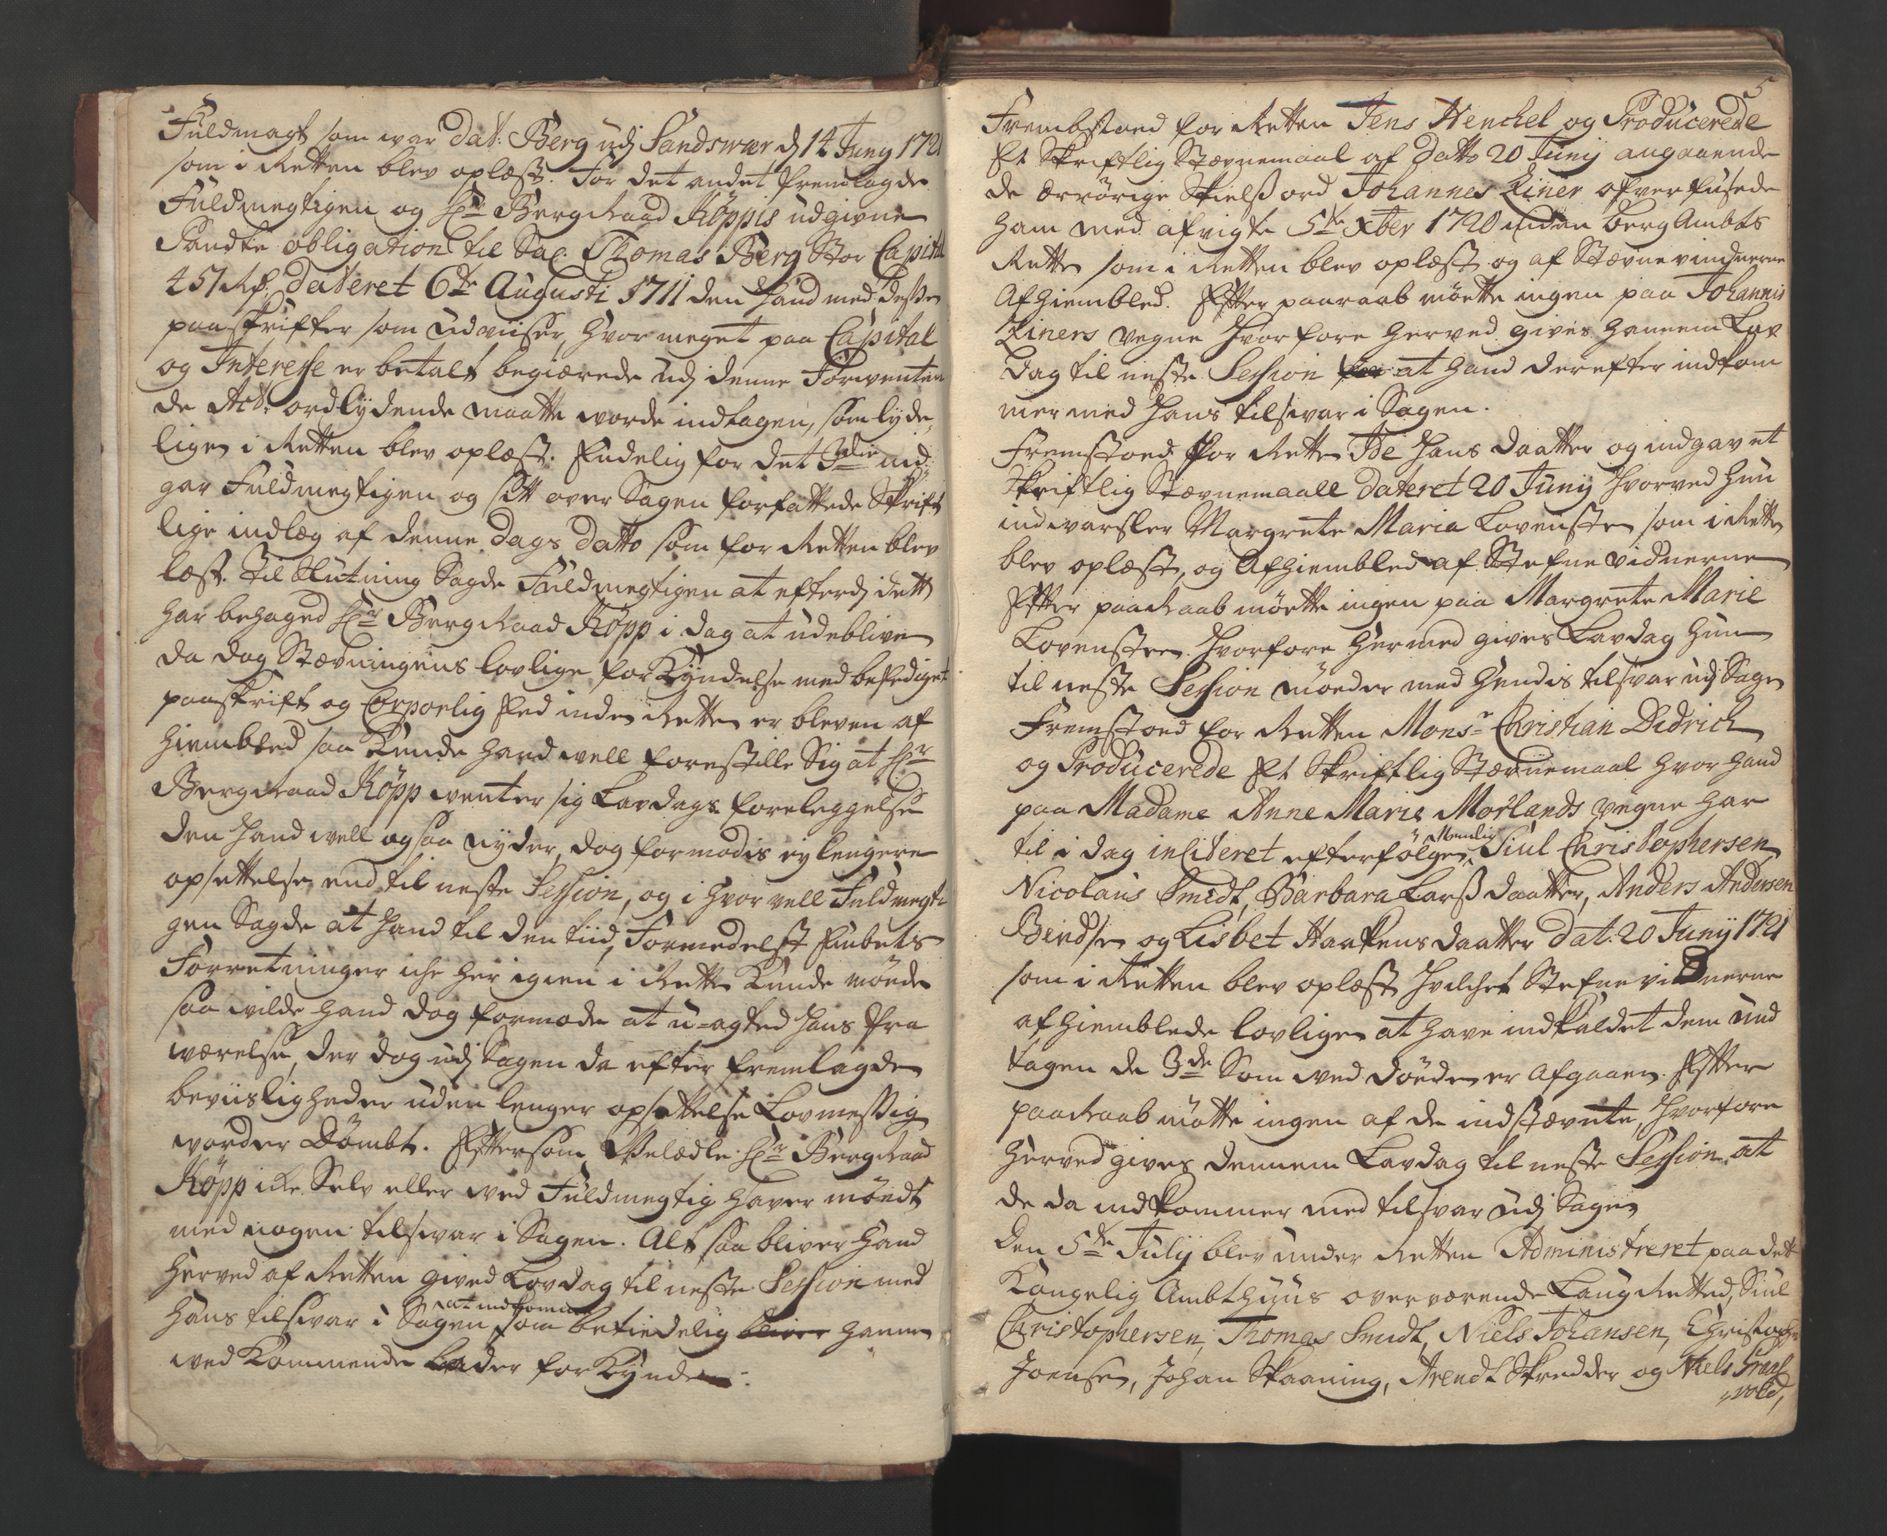 Fuldmagt som war dat: Berg udj Sandswær dj 14 Junij 1721
som i Retten blev oplæst. For det andet fremlagde
Fuldmegtigen og Hr BergRaad Köppis udgivne
Pandte obligation til Sal: Thomas Berg Stor Capital
451 Rdr: dateret 6te Augusti 1711 den Hand med desse
paaskrifter som udwiser, hvor meget paa Capital
og Interesse er betalt begiærede udj denne Forwenten
de Act: ordlydende maatte worde indtagen, som lyde,
ligen i Retten blev oplæst. Endelig for det 3die ind:
gav Fuldmegtigen og sitt over Sagen forfattede Skrift
lige indlæg af denne Dags Datto som for Retten blev
læst. Til Slutning Sagde Fuldmegtigen at efterdj dett
har behaged Hr BergRaad Köpp i dag at udeblive
da dog Stævningens lovlige forkyndelse med
paaskrift og Corporlig Eed inden Retten er bleven af
hiembled saa kunde hand well forestille Sig at Hr
BergRaad Köpp wenter sig Lavdags foreleggelse
den Hand well ogsaa nyder, dog formodis ey lengere
opsettelse end til neste Session, og i hvor vell Fuldmegti
gen Sagde at Hand til den tiid, Formedelst Embets
Forretninger iche her igien i Retten kunde möede
saa wilde hand dog formode at u-agted Hans fra
wærelse, der dog udj Sagen da efter fremlagde
beviisligheder uden lenger opsettelse Lovmessig
worder Dömbt. Eftersom Welædle Hr BergRaad
Köpp icke Selv eller wed Fuldmegtig haver möedt
med nogen tilswar i Sagen. Alt saa bliver Hand
herved af Retten gived Lovdag til neste Session med
Hans tilswar i Sagen at indkomme, som betiedelig bliver ham
wedkommende lader forkynde.
5
Frembstoed for Retten Jens Henchel og Producerede
Et Skriftlig Stævnemaal af Datto 20 Junij angaaende
de ærrörige Skielsord Johannes Ziner ofverfusede
ham med afvigte 5te Xber 1720 inden bergAmbts
Retten som i Retten blev oplæst og af Stævnevindnerne
Afhiembled. Efter paaraab möette ingen paa Johannis
Ziners vegne hvorfore herved gives hannem Lav
Dag til neste Session for at hand derefter indkom
mer med Hans tilswar i Sagen.
Fremstoed for Retten Ide Hans daatter og indgav et
Skriftlig Stævnemaall dateret 20 Junij hvorved hun
indwarsler Margrete Maria Lovensten som i Retten
blev oplæst, og Afhiembled af Stefnevidnerne
Efter paaRaab möette ingen paa Margrete Marie
Lovensten. Hvorfore hermed gives Lavdag hun
til neste Session möeder med hendis tilsvar udj Sagen
Fremstoed for Retten Monsr Christian Didrich
og Producerede Et Skriftlig Stævnemaal hvor hand
paa Madame Anne Marie Morlands vegne har
til i dag inciteret efterfölgen Nemlig Siul Christophersen,
Nicolaus Smidt, Barbara Larsdaatter, Anders Andersen
Bindsen og Lisbet Haakensdaatter dat: 20 Junij 1721
som i Retten blev oplæst hvilchet Stefnevidnerne
afhiemblede lovligen at have indkaldet dem und
tagen de 3de Som wed döeden er afgaaen. Efter
paaRaab mötte ingen af de indstævnte, hvorfore
herved gives dennem Lavdag til neste Session at
de da indkommer med tilsvar udj Sagen
Den 5te Julij blev under Retten Administreret paa det
Kongelig Ambthuus overwærende LaugRetted, Siul
Christophersen, Thomas Smidt, Niels Johansen, Christopher
Joensen, Johan Skaaning, Arendt Skredder og Niels
wold,